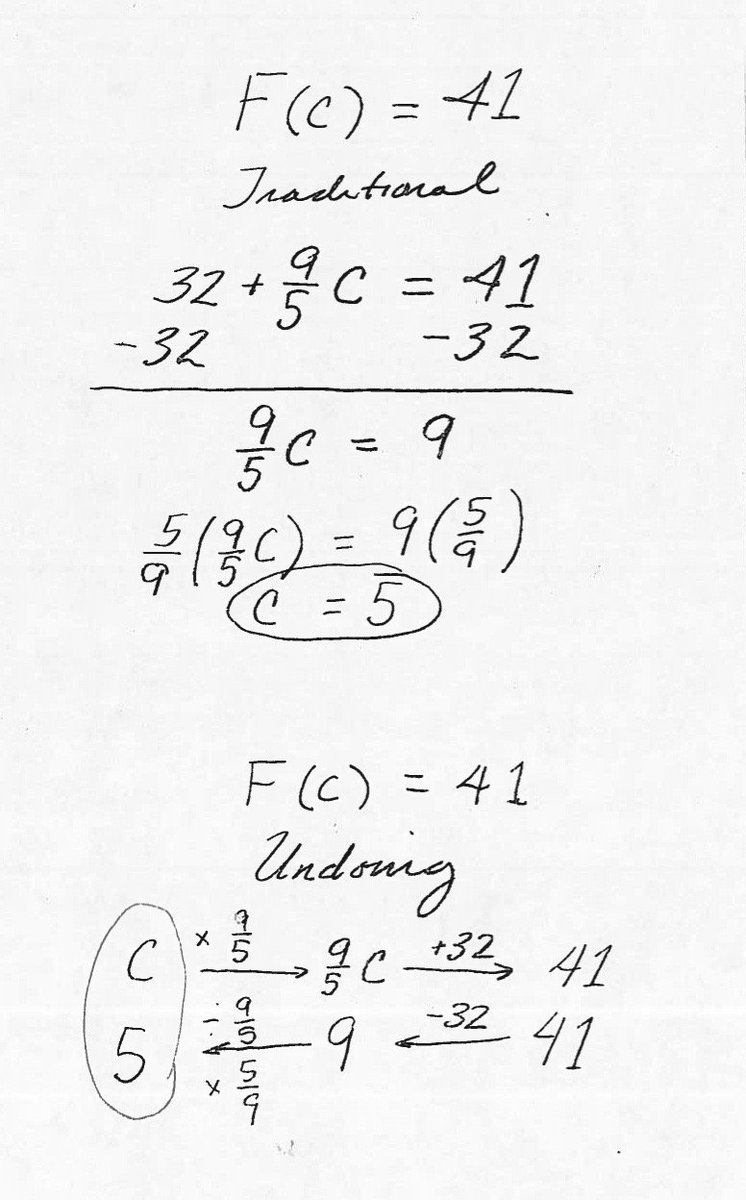 F(C) = 41
Traditional
32 + 9/5 C = 41
-32 -32
9/5 C = 9
5/9 (9/5 C) = 9 (5/9)
C = 5
F(C) = 41
Undoing
C × 9/5 → 9/5 C +32 → 41
5 ÷ 9/5 ← 9 -32 ← 41
× 5/9